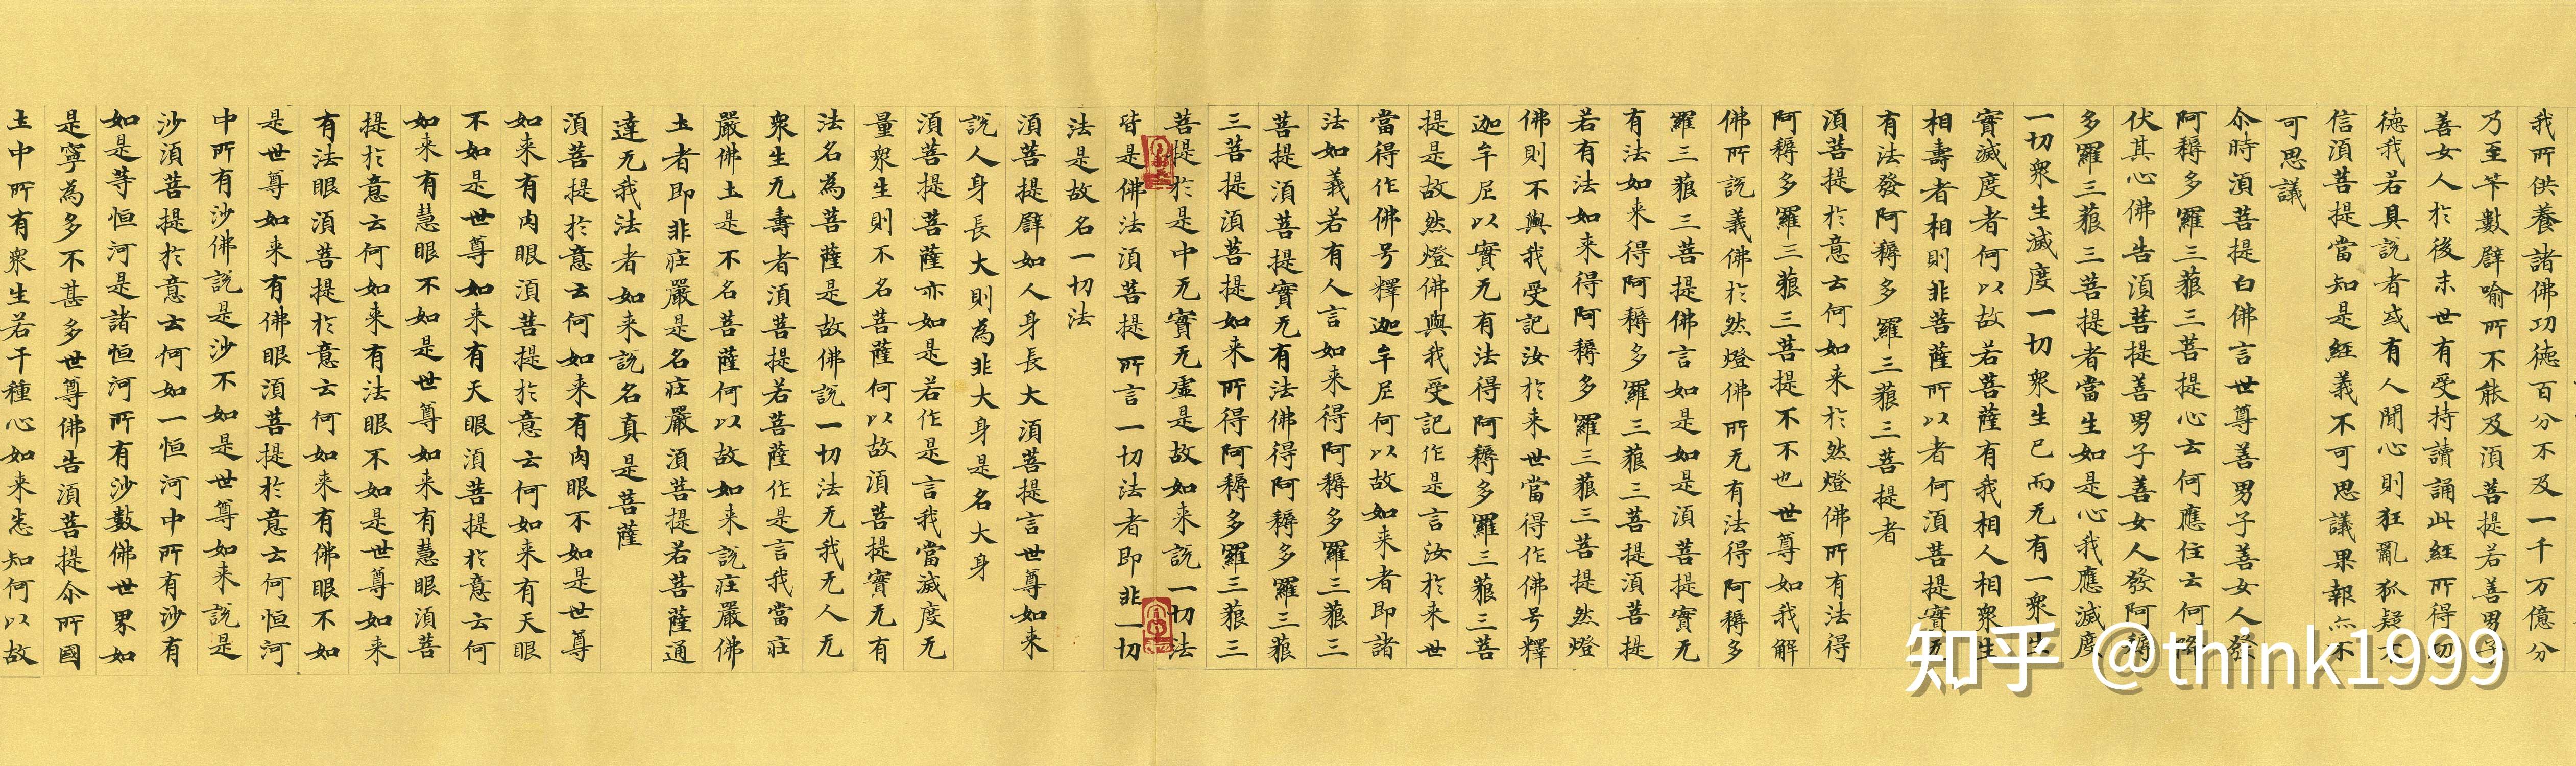 我所供養諸佛功德百分不及一千万億分
乃至筭數譬喻所不能及須菩提若善男子
善女人於後末世有受持讀誦此經所得功
德我若具說者或有人聞心則狂亂狐疑不
信須菩提當知是經義不可思議果報亦不
可思議
尒時須菩提白佛言世尊善男子善女人發
阿耨多羅三藐三菩提心云何應住云何降
伏其心佛告須菩提善男子善女人發阿耨
多羅三藐三菩提者當生如是心我應滅度
一切衆生滅度一切衆生已而无有一衆生
實滅度者何以故若菩薩有我相人相衆生
相壽者相則非菩薩所以者何須菩提實无
有法發阿耨多羅三藐三菩提者
須菩提於意云何如来於然燈佛所有法得
阿耨多羅三藐三菩提不不也世尊如我解
佛所說義佛於然燈佛所无有法得阿耨多
羅三藐三菩提佛言如是如是須菩提實无
有法如来得阿耨多羅三藐三菩提須菩提
若有法如来得阿耨多羅三藐三菩提然燈
佛則不與我受記汝於来世當得作佛号釋
迦牟尼以實无有法得阿耨多羅三藐三菩
提是故然燈佛與我受記作是言汝於来世
當得作佛号釋迦牟尼何以故如来者即諸
法如義若有人言如来得阿耨多羅三藐三
菩提須菩提實无有法佛得阿耨多羅三藐
三菩提須菩提如来所得阿耨多羅三藐三
菩提於是中无實无虛是故如来說一切法
皆是佛法須菩提所言一切法者即非一切
法是故名一切法
須菩提譬如人身長大須菩提言世尊如来
說人身長大則為非大身是名大身
須菩提菩薩亦如是若作是言我當滅度无
量衆生則不名菩薩何以故須菩提實无有
法名為菩薩是故佛說一切法无我无人无
衆生无壽者須菩提若菩薩作是言我當莊
嚴佛土是不名菩薩何以故如来說莊嚴佛
土者即非莊嚴是名莊嚴須菩提若菩薩通
達无我法者如来說名真是菩薩
須菩提於意云何如来有肉眼不如是世尊
如来有肉眼須菩提於意云何如来有天眼
不如是世尊如来有天眼須菩提於意云何
如来有慧眼不如是世尊如来有慧眼須菩
提於意云何如来有法眼不如是世尊如来
有法眼須菩提於意云何如来有佛眼不如
是世尊如来有佛眼須菩提於意云何恒河
中所有沙佛說是沙不如是世尊如来說是
沙須菩提於意云何如一恒河中所有沙有
如是等恒河是諸恒河所有沙數佛世界如
是寧為多不甚多世尊佛告須菩提尒所國
土中所有衆生若干種心如来悉知何以故
知乎 @think1999